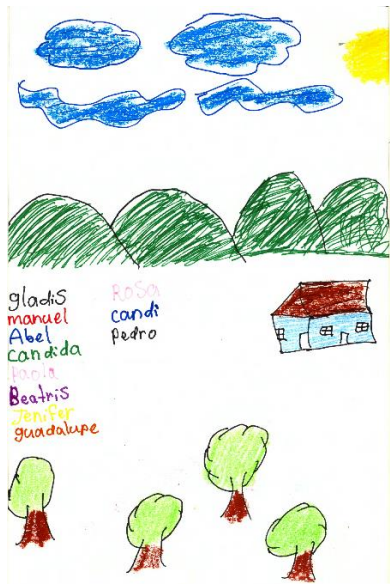 gladis
manuel
Abel
candida
Paola
Beatris
Jenifer
guadalupe
Rosa
candi
Pedro